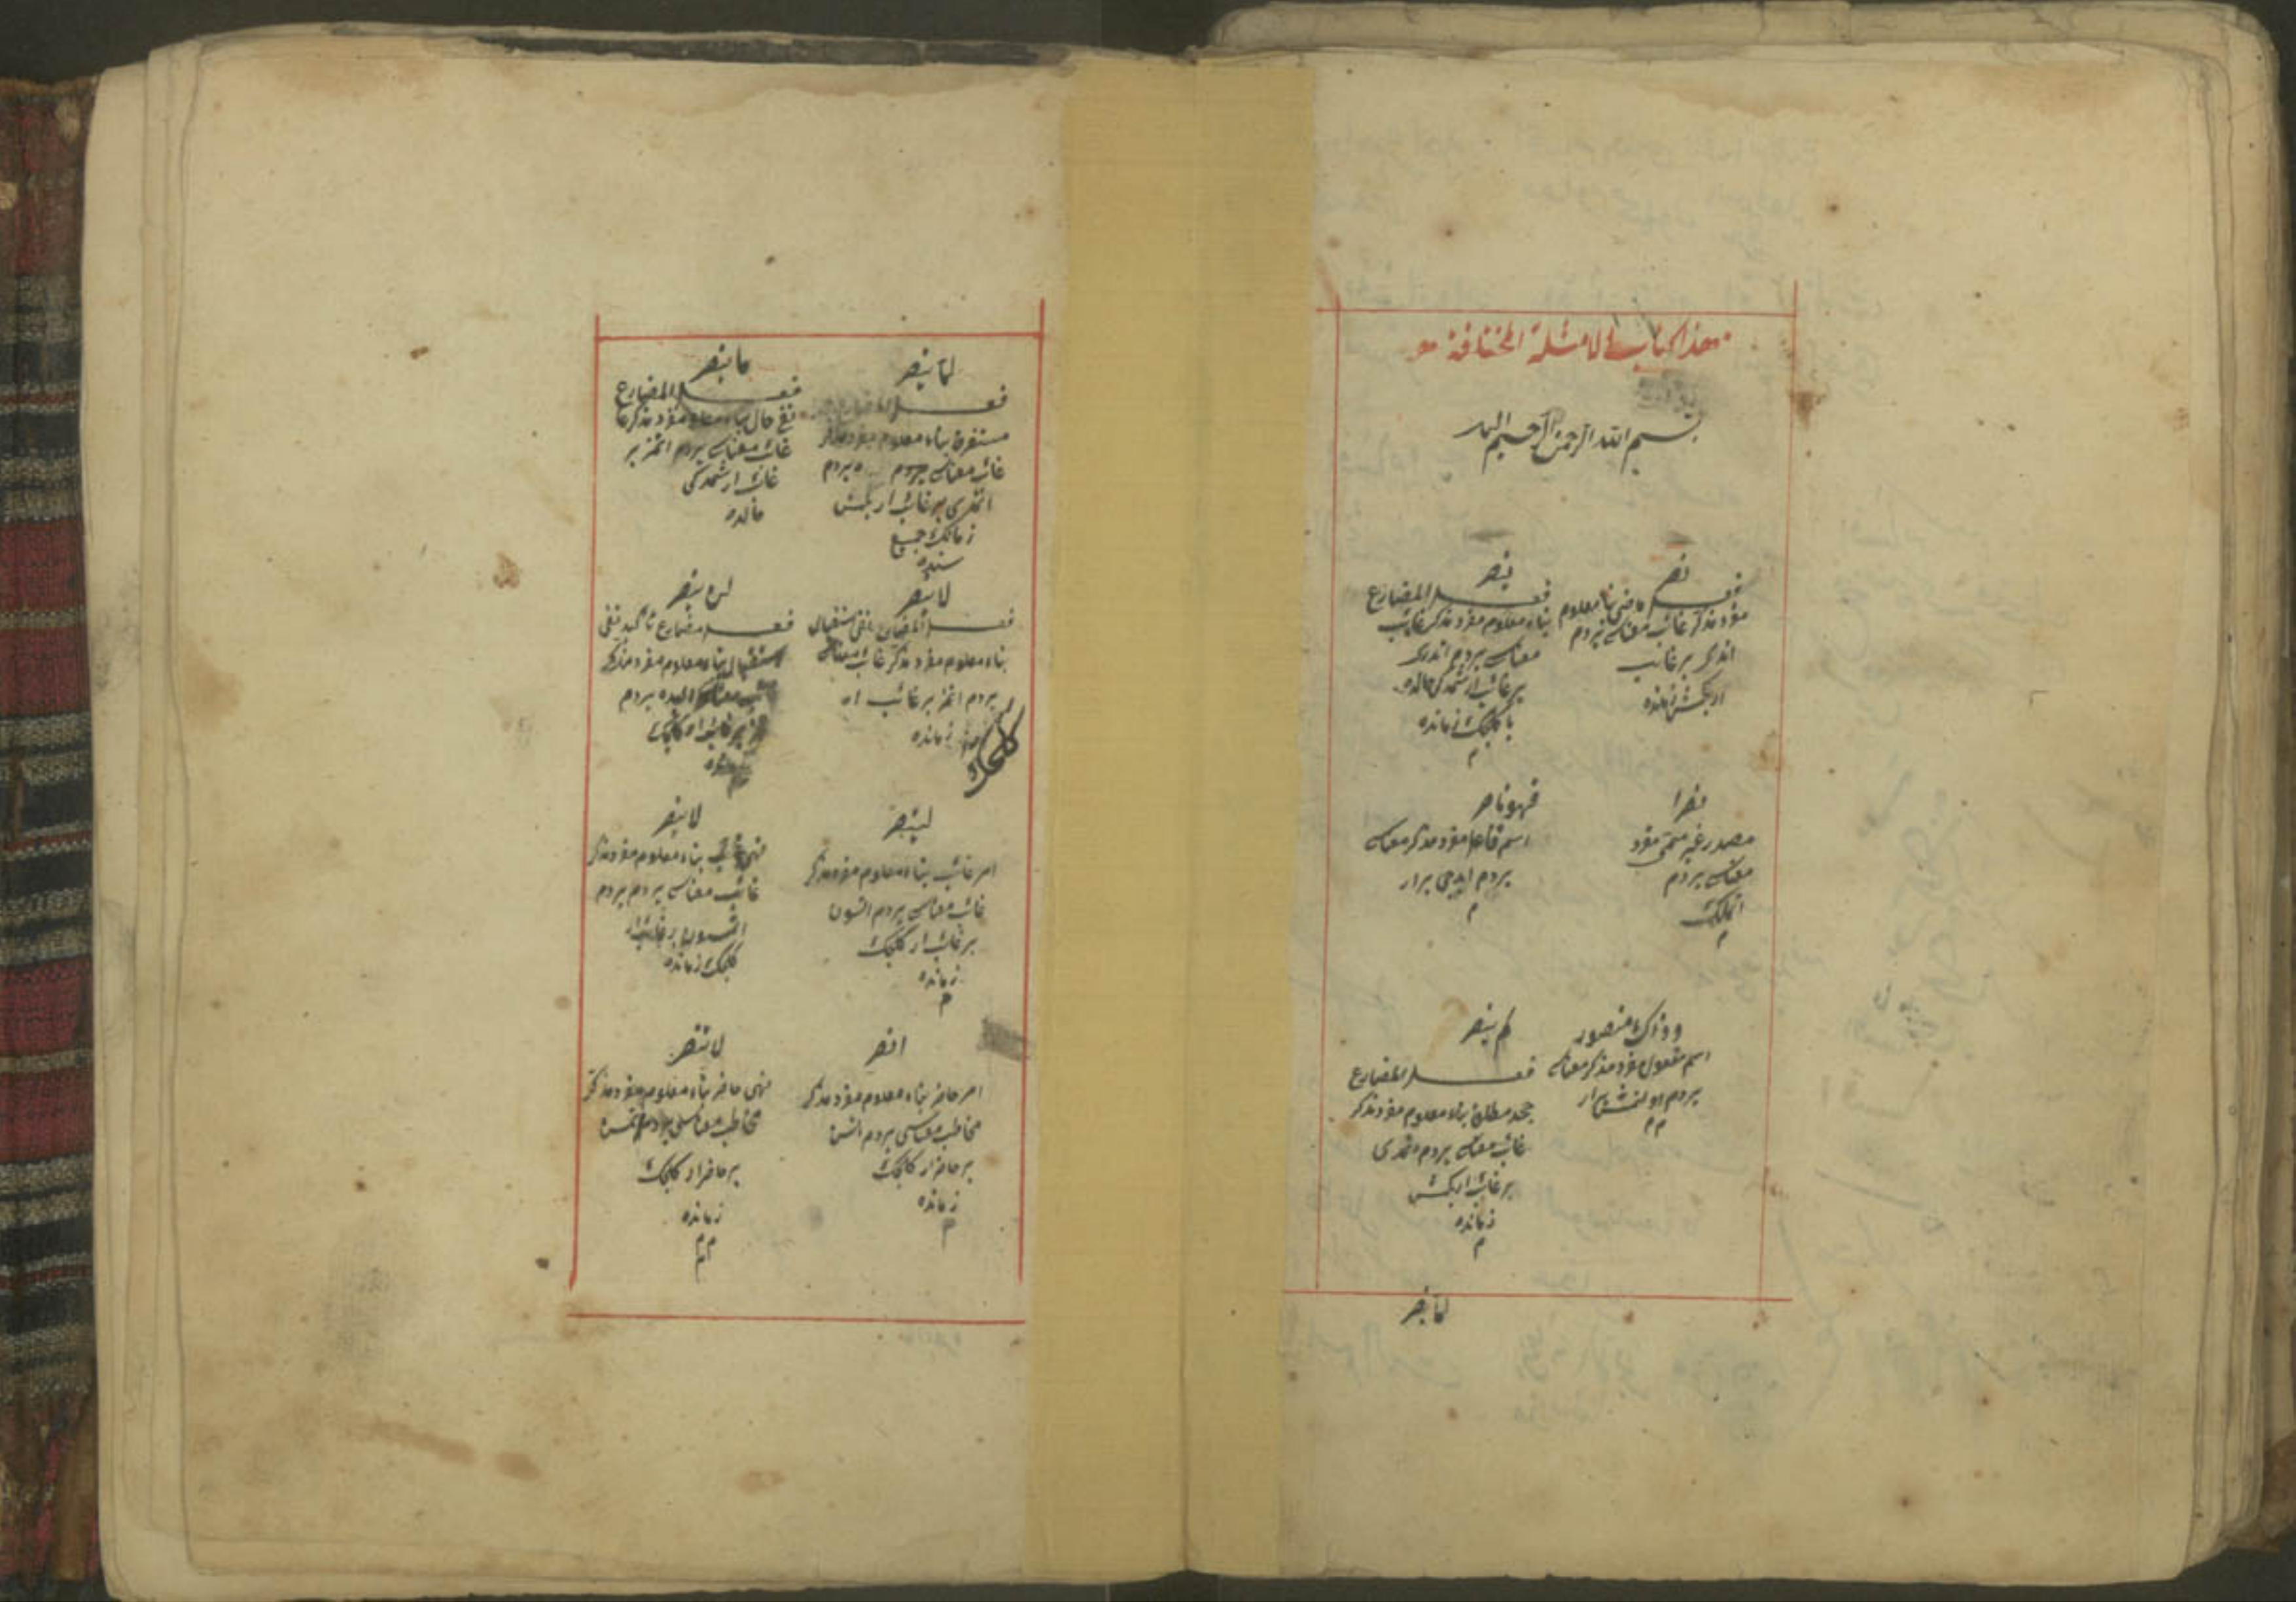 هذا كتاب الامثلة المختلفة
بسم الله الرحمن الرحيم
نصر
فعل ماضى بناء معلوم
مفرد مذكر غائب معناسى يردم
اتدى بر غائب ار
كچمش زمانده
ينصر
فعل المضارع
بناء معلوم مفرد مذكر غائب
معناسى يردم ايدر
بر غائب ار شمديكى حالده
يا كلجك زمانده
م
نصرا
مصدر غير ميمى مفرد
معناسى يردم
اتملك
م
فهو ناصر
اسم فاعل مفرد مذكر معناسى
يردم ايديجى بر ار
م
وذاك منصور
اسم مفعول مفرد مذكر معناسى
يردم اولنمش بر ار
م م
لم ينصر
فعل المضارع
جحد مطلق بناء معلوم مفرد مذكر
غائب معناسى يردم اتمدى
بر غائب ار كچمش
زمانده
م
لما ينصر
لما ينصر
فعل المضارع
مستغرق بناء معلوم مفرد مذكر
غائب معناسى يردم
اتمدى بر غائب ار كچمش
زمانك جميع
سنده
ما ينصر
فعل المضارع
نفى حال بناء معلوم مفرد مذكر
غائب معناسى يردم اتمز بر
غائب ار شمديكى
حالده
لا ينصر
فعل المضارع نفى استقبال
بناء معلوم مفرد مذكر غائب معناسى
يردم اتمز بر غائب ار
كلجك
زمانده
لن ينصر
فعل مضارع تأكيد نفى
استقبال بناء معلوم مفرد مذكر
غائب معناسى البته يردم
اتمز بر غائب ار كلجك
زمانده
لينصر
امر غائب بناء معلوم مفرد مذكر
غائب معناسى يردم اتسون
بر غائب ار كلجك
زمانده
م
لا ينصر
نهى غائب بناء معلوم مفرد مذكر
غائب معناسى يردم
اتمسون بر غائب ار
كلجك زمانده
انصر
امر حاضر بناء معلوم مفرد مذكر
مخاطب معناسى يردم اتسن
بر حاضر ار كلجك
زمانده
م
لا تنصر
نهى حاضر بناء معلوم مفرد مذكر
مخاطب معناسى يردم اتمسن
بر حاضر ار كلجك
زمانده
م م